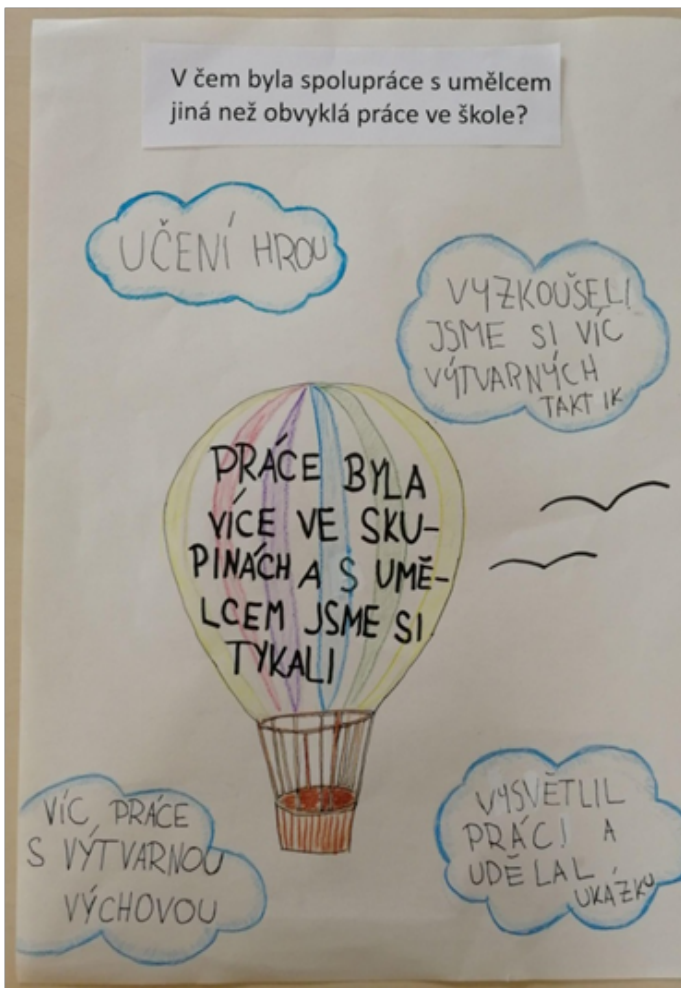 V čem byla spolupráce s umělcem
jiná než obvyklá práce ve škole?
UČENÍ HROU
VYZKOUŠELI
JSME SI VÍC
VÝTVARNÝCH
TAKTIK
PRÁCE BYLA
VÍCE VE SKU-
PINÁCH A S UMĚ-
LCEM JSME SI
TYKALI
VÍC PRÁCE
S VÝTVARNOU
VÝCHOVOU
VYSVĚTLIL
PRÁCI A
UDĚLAL
UKÁZKU